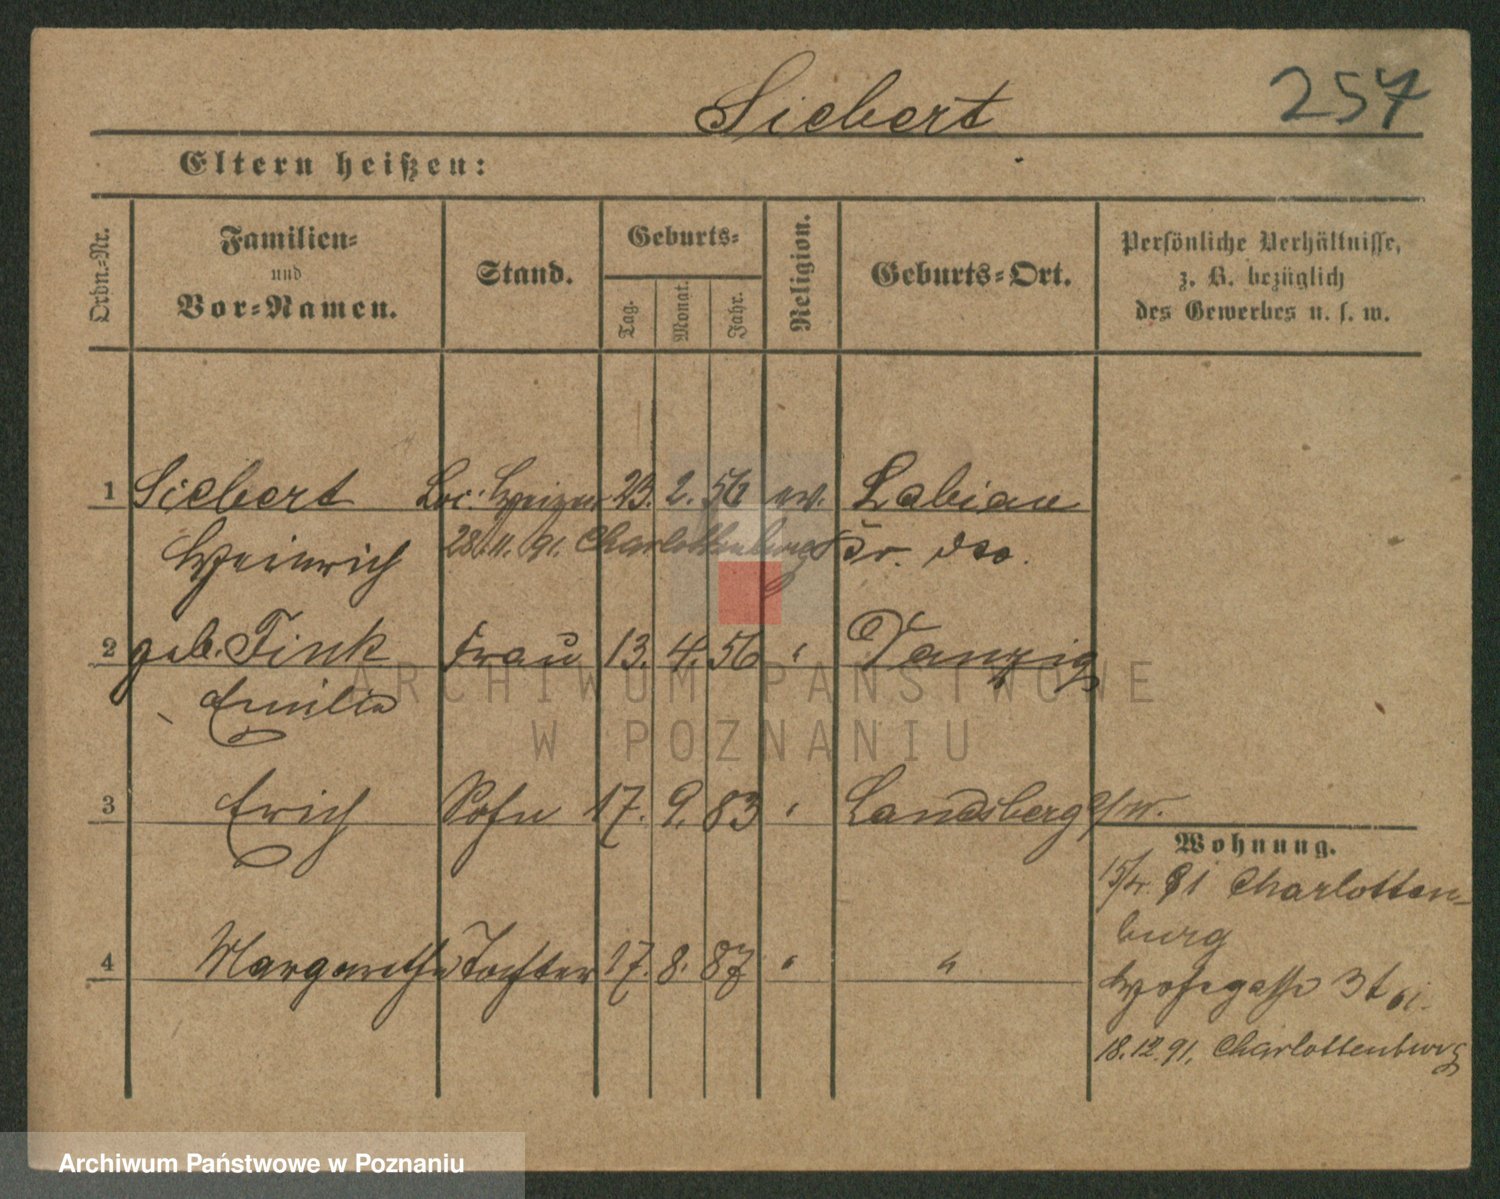 Siebert
257
Eltern heißen:
Ordn.-Nr.
Familien-
und
Vor-Namen.
Stand.
Geburts-
Tag.
Monat.
Jahr.
Religion.
Geburts-Ort.
Persönliche Verhältnisse,
z. B. bezüglich
des Gewerbes u. s. w.
1 Siebert Loc. Heizer 23. 2. 56 ev. Labiau
Heinrich 28.11.91. Charlottenburg
2 geb. Fink Frau 13. 4. 56 " Danzig
Emilie
3 Erich Sohn 17. 9. 83 " Landsberg a/W.
Wohnung.
91 Charlotten-
burg
4 Margarethe Tochter 17. 8. 87 " "
Hohegasse 3
18.12.91. Charlottenburg
ARCHIWUM PAŃSTWOWE
W POZNANIU
Archiwum Państwowe w Poznaniu